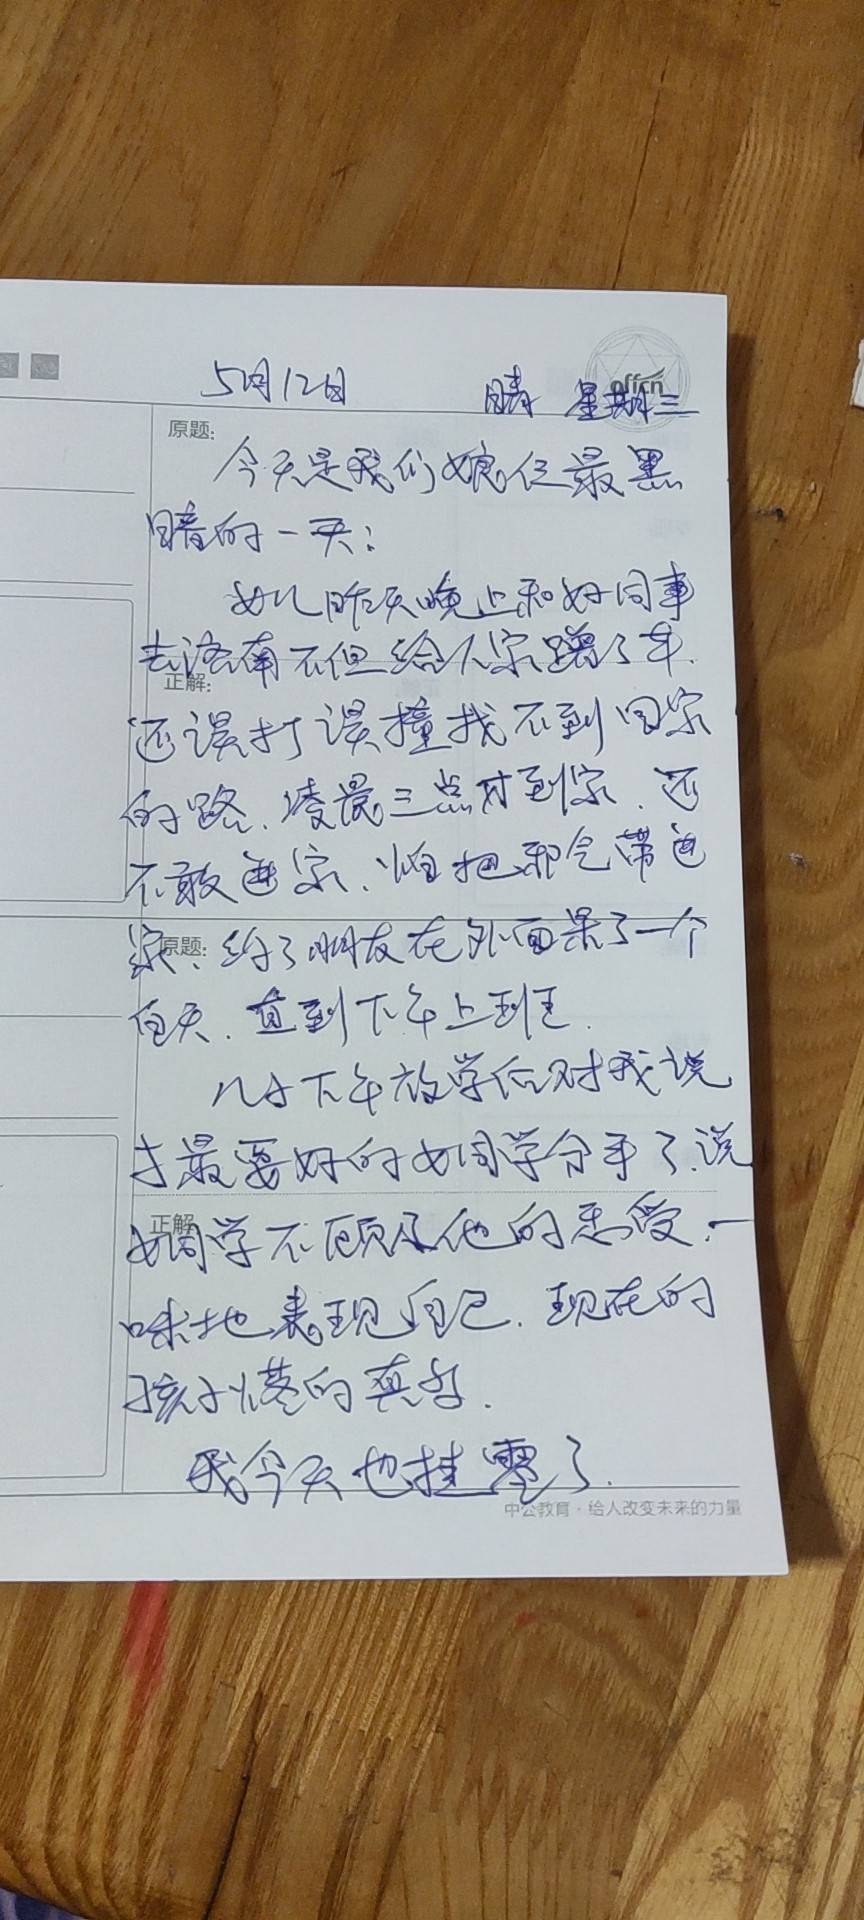 5月12日 晴 星期三
offcn
原题:
今天是我们娘仨最黑
暗的一天:
女儿昨天晚上和好同事
去洛南不但给人家蹭了车.
正解:
还误打误撞找不到回家
的路、凌晨三点才到家、还
不敢进家、怕把邪气带进
家、约了朋友在外面呆了一个
原题:
白天、直到下午上班.
儿子下午放学后对我说
才最要好的女同学分手了、说
正解
女同学不顾及他的感受、一
味地表现自己、现在的
孩子懂的真多.
我今天也挂零了.
中公教育·给人改变未来的力量